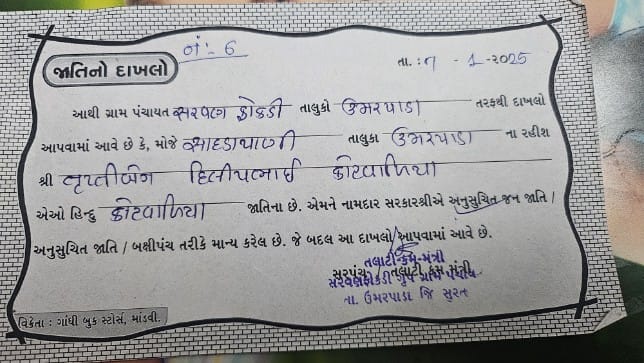 નં:- 6
જાતિનો દાખલો
તા. : ૧ - 1 - 2025
આથી ગ્રામ પંચાયત સરવણ ફોકડી તાલુકો ઉમરપાડા તરફથી દાખલો
આપવામાં આવે છે કે, મોજે સાદડાપાણી તાલુકા ઉમરપાડા ના રહીશ
શ્રી તૃપ્તીબેન દિલીપભાઈ કોટવાળિયા
એઓ હિન્દુ કોટવાળિયા જાતિના છે. એમને નામદાર સરકારશ્રીએ અનુસુચિત જન જાતિ /
અનુસુચિત જાતિ / બક્ષીપંચ તરીકે માન્ય કરેલ છે. જે બદલ આ દાખલો આપવામાં આવે છે.
તલાટી-કમ-મંત્રી
સરપંચ તલાટી કમ મંત્રી
સરવણફોકડી ગ્રુપ ગ્રામ પંચાયત
તા. ઉમરપાડા જિ સુરત
વિક્રેતા : ગાંધી બુક સ્ટોર્સ, માંડવી.